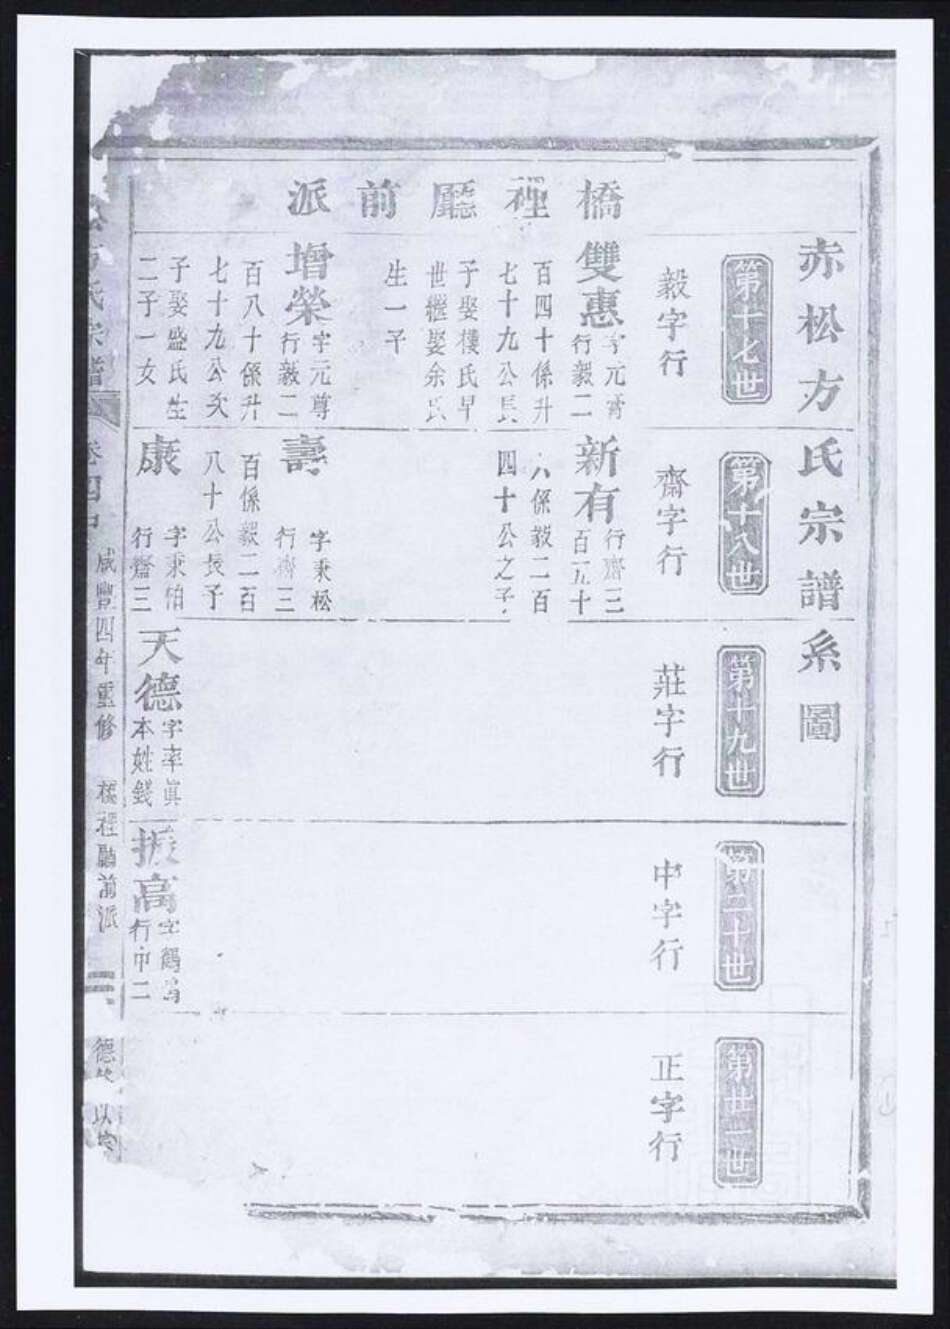 赤松方氏宗譜系圖
第十七世
第十八世
第十九世
第二十世
第廿一世
毅字行
齋字行
莊字行
中字行
正字行
橋裡廳前派
雙惠
字元
行毅二
百四十係升
七十九公長
子娶樓氏早
世繼娶余氏
生一子
新有
行齋三
百五十
六係毅二百
四十公之子
增榮
字元尊
行毅二
百八十係升
七十九公次
子娶盛氏生
二子一女
壽
字秉松
行齋三
百係毅二百
八十公長子
康
字秉怕
行齋三
天德
字率真
本姓錢
振高
字鶴
行中二
松方氏宗譜
卷四
咸豐四年重修
橋裡廳前派
二
德
以